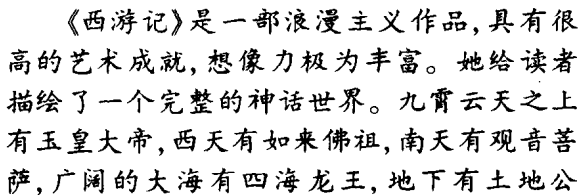 《西游记》是一部浪漫主义作品,具有很
高的艺术成就,想像力极为丰富。她给读者
描绘了一个完整的神话世界。九霄云天之上
有玉皇大帝,西天有如来佛祖,南天有观音菩
萨,广阔的大海有四海龙王,地下有土地公